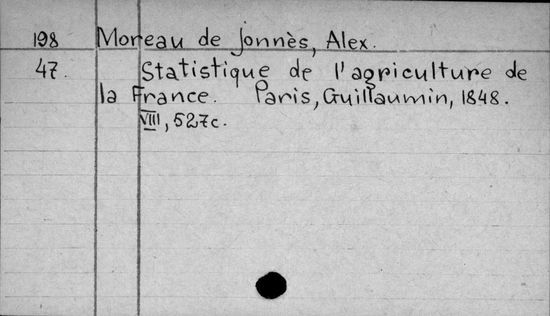 198 Moreau de Jonnès, Alex.
47. Statistique de l'agriculture de
la France. Paris, Guillaumin, 1848.
VIII, 527c.